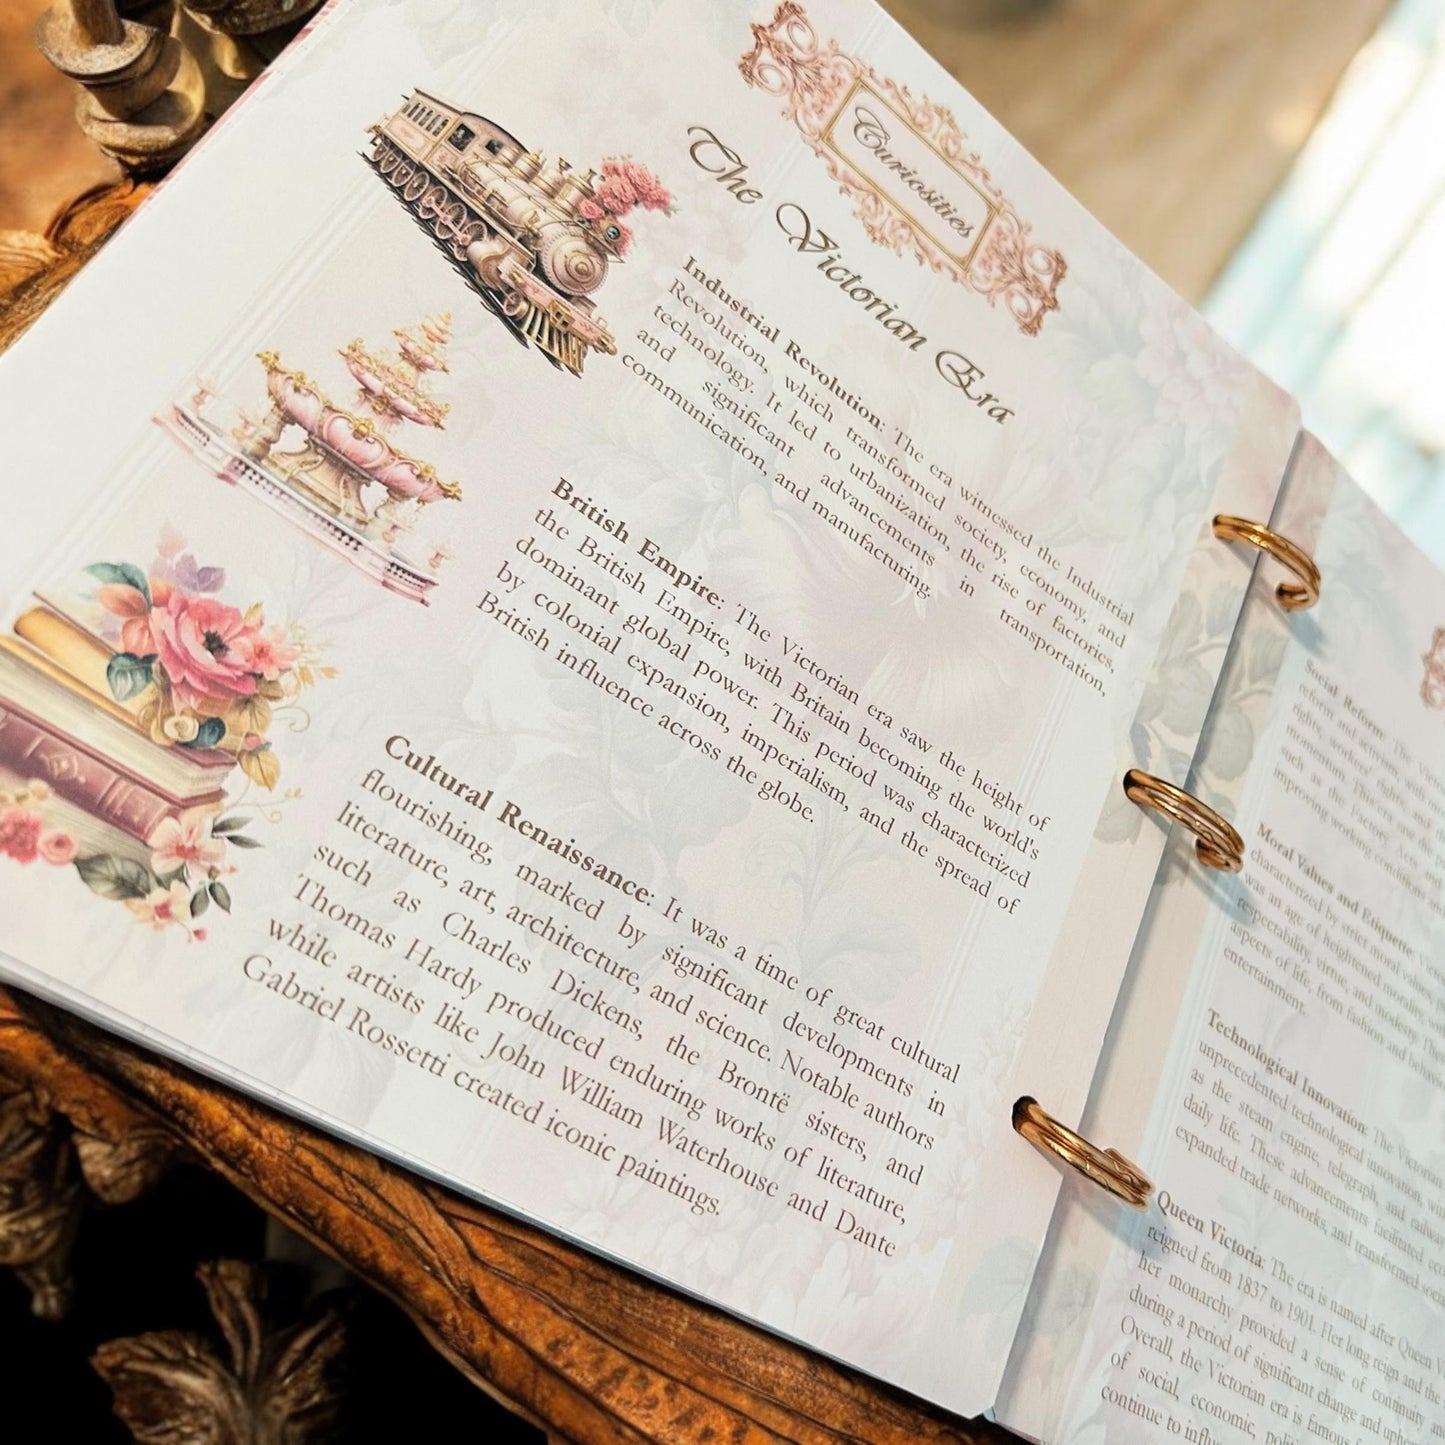 Curiosities
The Victorian Era
Industrial Revolution: The era witnessed the Industrial
Revolution, which transformed society, economy, and
technology. It led to urbanization, the rise of factories,
and significant advancements in transportation,
communication, and manufacturing.
British Empire: The Victorian era saw the height of
the British Empire, with Britain becoming the world's
dominant global power. This period was characterized
by colonial expansion, imperialism, and the spread of
British influence across the globe.
Cultural Renaissance: It was a time of great cultural
flourishing, marked by significant developments in
literature, art, architecture, and science. Notable authors
such as Charles Dickens, the Brontë sisters, and
Thomas Hardy produced enduring works of literature,
while artists like John William Waterhouse and Dante
Gabriel Rossetti created iconic paintings.
Social Reform: The
reform and activism, with
rights, workers' rights, and
momentum. This era saw the
such as the Factory Acts and
improving working conditions
Moral Values and Etiquette:
characterized by strict moral values,
was an age of heightened morality,
respectability, virtue, and modesty.
aspects of life, from fashion and
entertainment.
Technological Innovation: The Victorian
unprecedented technological innovation,
as the steam engine, telegraph, and
daily life. These advancements facilitated
expanded trade networks, and transformed
Queen Victoria: The era is named after Queen
reigned from 1837 to 1901. Her long reign and the
her monarchy provided a sense of continuity
during a period of significant change and
Overall, the Victorian era is famous
of social, economic,
continue to